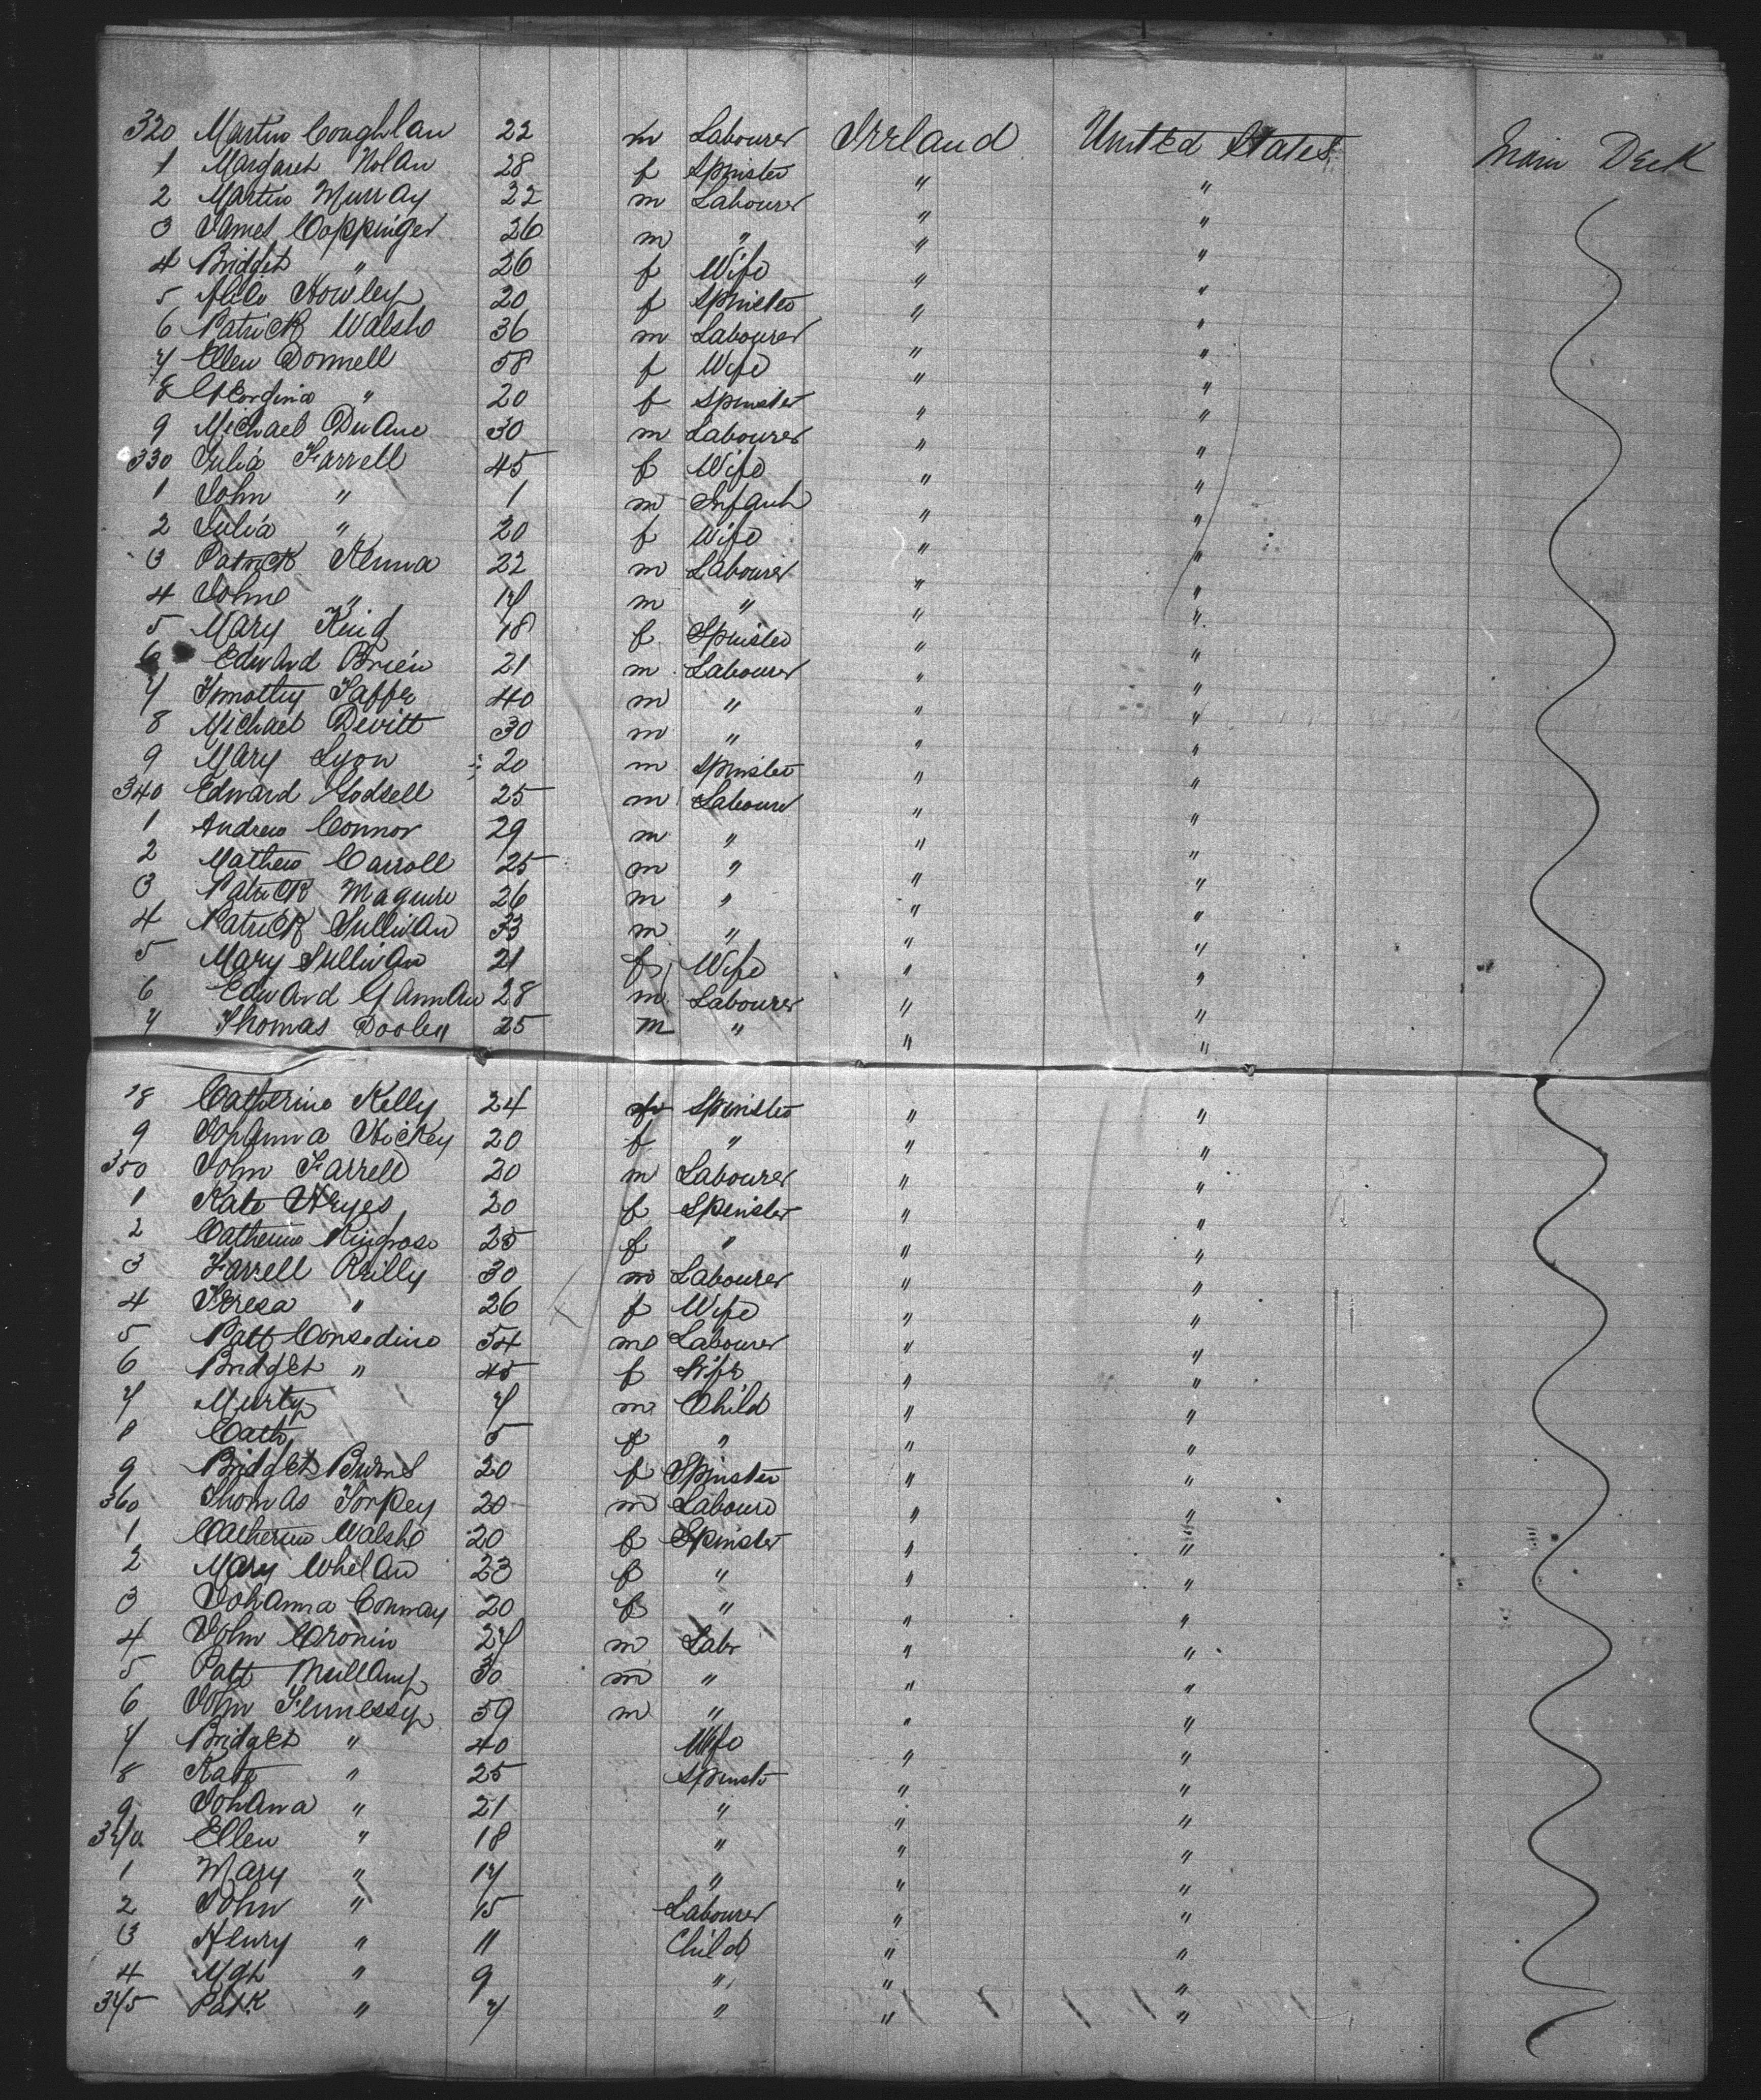 320 Martin Coughlan 22 m Labourer Ireland United States Main Deck
1 Margaret Nolan 28 f Spinster " "
2 Martin Murray 22 m Labourer " "
3 James Coppinger 26 m " " "
4 Bridget " 26 f Wife " "
5 Alice Howley 20 f Spinster " "
6 Patrick Walsh 36 m Labourer " "
7 Ellen Donnell 58 f Wife " "
8 Georgina " 20 f Spinster " "
9 Michael Duane 30 m Labourer " "
330 Julia Farrell 45 f Wife " "
1 John " 1 m Infant " "
2 Julia " 20 f Wife " "
3 Patrick Kenna 22 m Labourer " "
4 John " 17 m " " "
5 Mary King 18 f Spinster " "
6 Edward Brien 21 m Labourer " "
7 Timothy 40 m " " "
8 Michael Devitt 30 m " " "
9 Mary Lyon 20 m Spinster " "
340 Edward Godsell 25 m Labourer " "
1 Andrew Connor 29 m " " "
2 Mathew Carroll 25 m " " "
3 Patrick Maguire 26 m " " "
4 Patrick Sullivan 33 m " " "
5 Mary Sullivan 21 f Wife " "
6 Edward Gannan 28 m Labourer " "
7 Thomas Dooley 25 m " " "
8 Catherine Kelly 24 f Spinster " "
9 Johanna Hickey 20 f " " "
350 John Farrell 20 m Labourer " "
1 Kate Hayes 20 f Spinster " "
2 Catherine Ringrose 25 f " " "
3 Farrell Reilly 30 m Labourer " "
4 Teresa " 26 f Wife " "
5 Patt Considine 54 m Labourer " "
6 Bridget " 45 f Wife " "
7 Murty 7 m Child " "
8 Cath 5 f " " "
9 Bridget Burns 20 f Spinster " "
360 Thomas Torpey 20 m Labourer " "
1 Catherine Walsh 20 f Spinster " "
2 Mary Whelan 23 f " " "
3 Johanna Conway 20 f " " "
4 John Cronin 27 m Labr " "
5 Patt Mullany 30 m " " "
6 John Fennessy 59 m " " "
7 Bridget " 40 Wife " "
8 Kate " 25 Spinster " "
9 Johana " 21 " " "
370 Ellen " 18 " " "
1 Mary " 17 " " "
2 John " 15 Labourer " "
3 Henry " 11 Child " "
4 Mgt " 9 " " "
375 Patk " 7 " " "